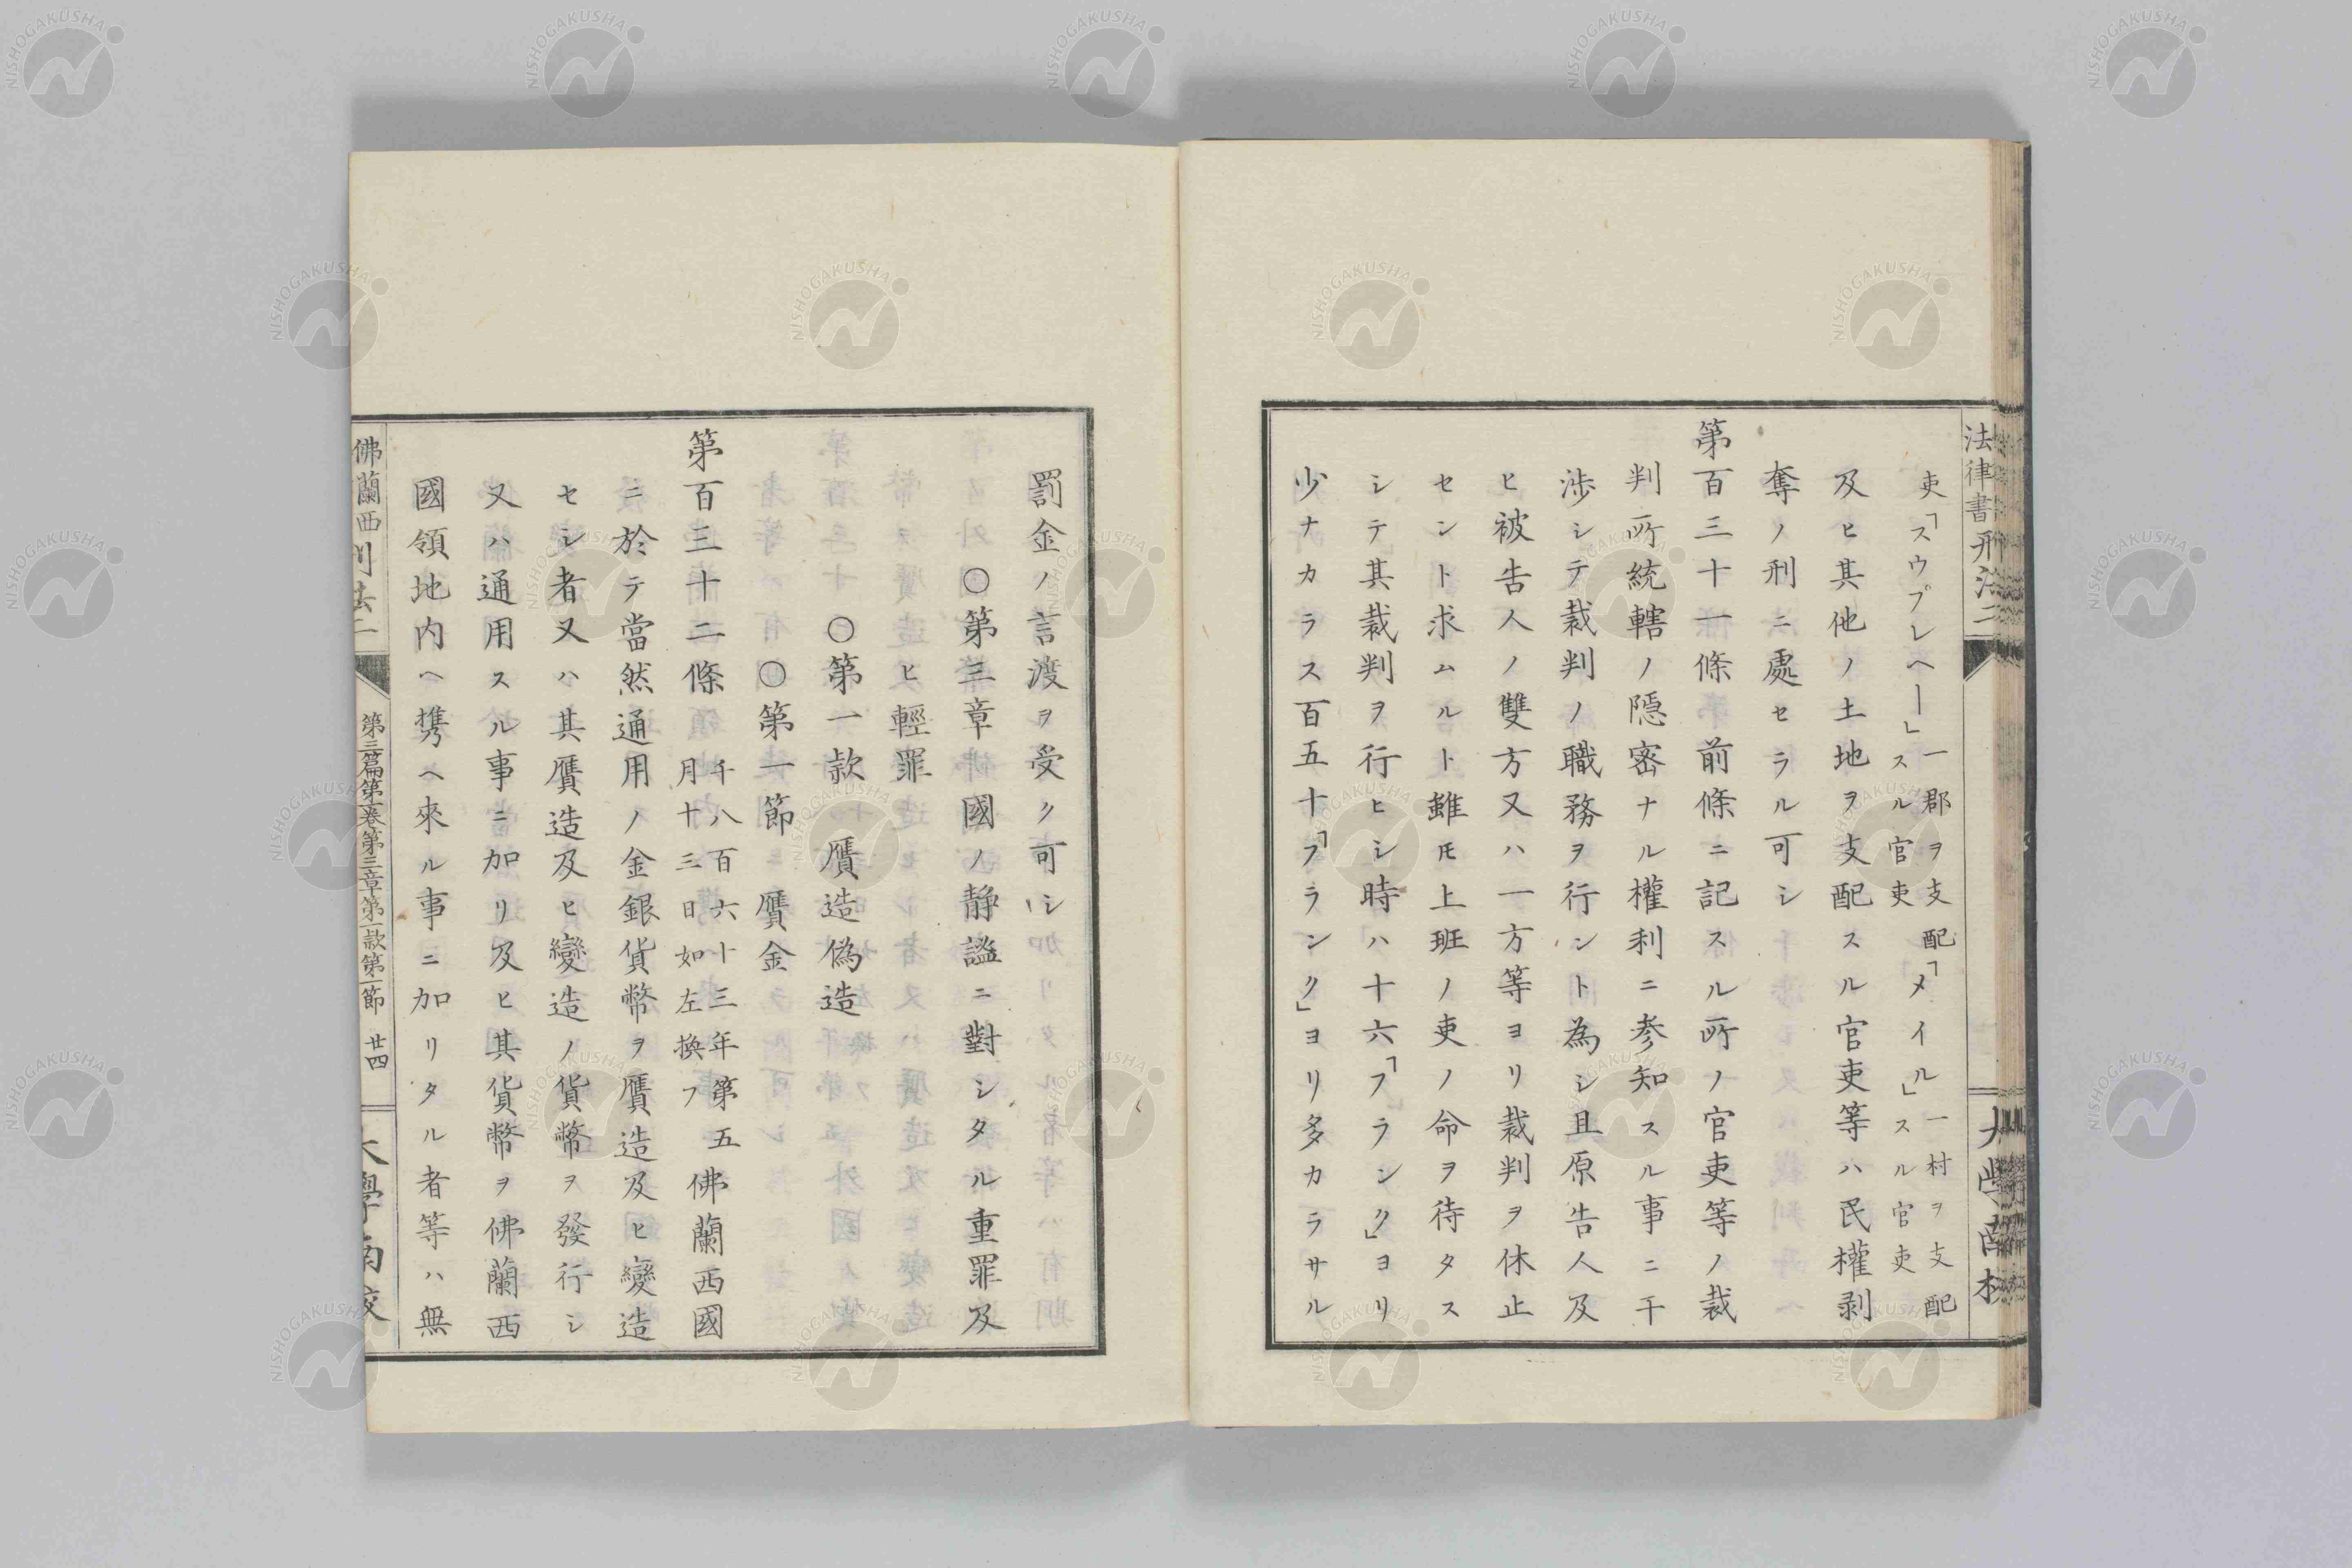 法律書刑法二
吏「スウプレヘー」一郡ヲ支配スル官吏「メイル」一村ヲ支配スル官吏
及ヒ其他ノ土地ヲ支配スル官吏等ハ民權剥
奪ノ刑ニ處セラル可シ
第百三十一條前條ニ記スル所ノ官吏等ノ裁
判所統轄ノ隠密ナル權利ニ参知スル事ニ干
渉シテ裁判ノ職務ヲ行ント為シ且原告人及
ヒ被告人ノ雙方又ハ一方等ヨリ裁判ヲ休止
セント求ムルト雖𪜈上班ノ吏ノ命ヲ待タス
シテ其裁判ヲ行ヒシ時ハ十六「フランク」ヨリ
少ナカラス百五十「フランク」ヨリ多カラサル
罰金ノ言渡ヲ受ク可シ
〇第三章國ノ静謐ニ對シタル重罪及
ヒ輕罪
〇第一款 贋造偽造
〇第一節 贋金
第百三十二條千八百六十三年第五月十三日如左換フ佛蘭西國
ニ於テ當然通用ノ金銀貨幣ヲ贋造及ヒ變造
セシ者又ハ其贋造及ヒ變造ノ貨幣ヲ發行シ
又ハ通用スル事ニ加リ及ヒ其貨幣ヲ佛蘭西
國領地内ヘ携ヘ來ル事ニ加リタル者等ハ無
佛蘭西刑法二
第三篇第一巻第三章第一款第一節 廿四
大學南校
NISHOGAKUSHA